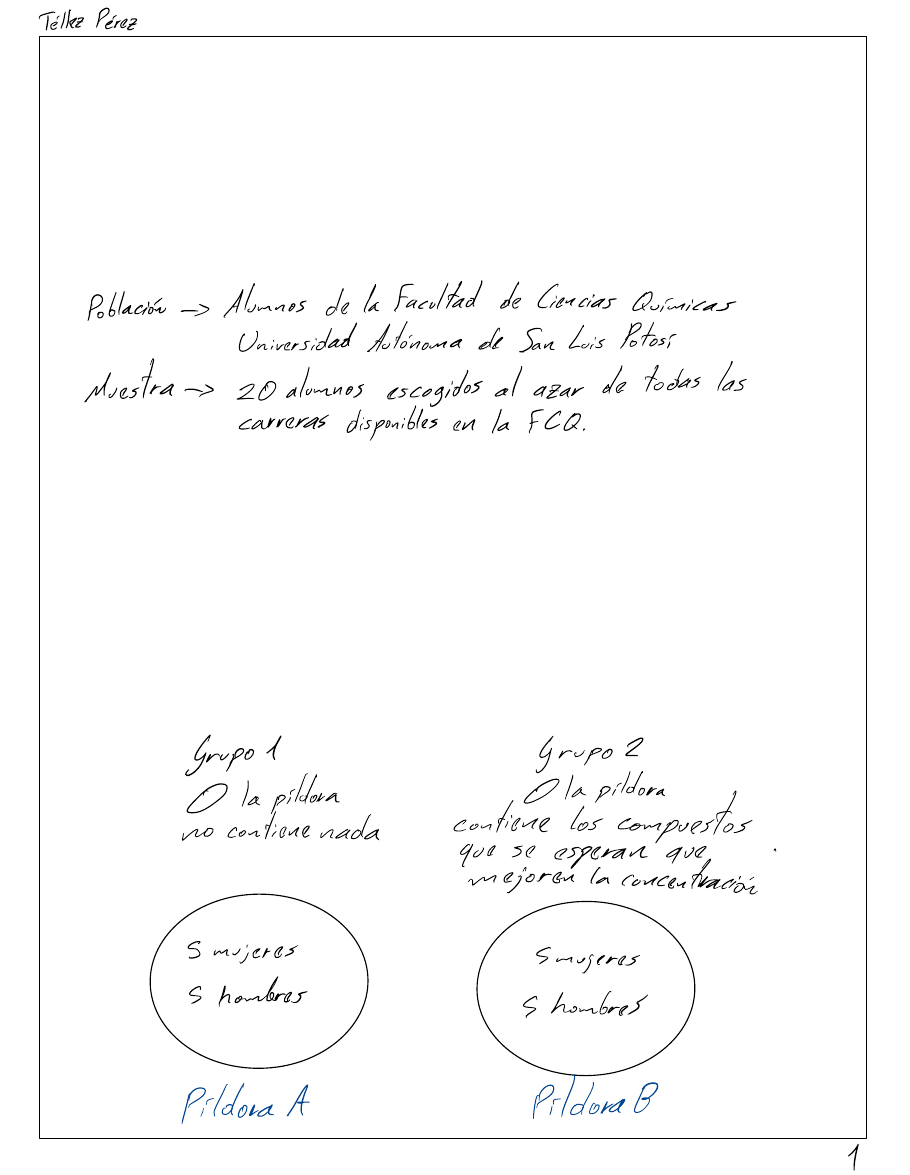 Téllez Pérez
Población -> Alumnos de la Facultad de Ciencias Químicas
Universidad Autónoma de San Luis Potosí
Muestra -> 20 alumnos escogidos al azar de todas las
carreras disponibles en la FCQ.
Grupo 1
la píldora
no contiene nada
Grupo 2
la píldora
contiene los compuestos
que se esperan que
mejoren la concentración
5 mujeres
5 hombres
5 mujeres
5 hombres
Píldora A
Píldora B
1